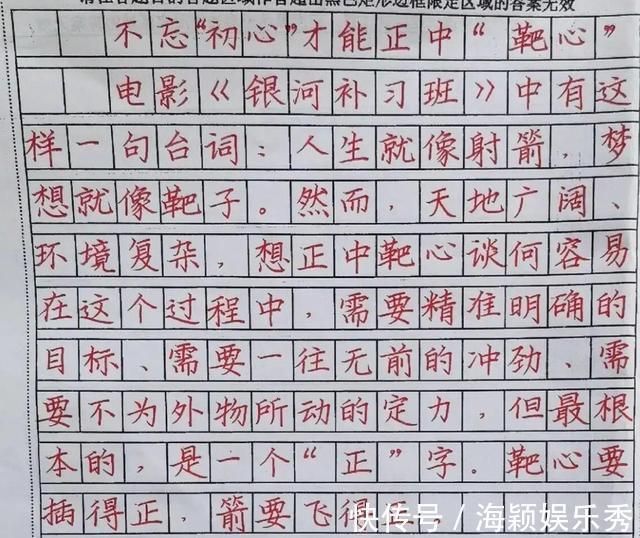 请在各题目的答题区域作答超出黑色矩形边框限定区域的答案无效
不忘“初心”才能正中“靶心”
电影《银河补习班》中有这
样一句台词：人生就像射箭，梦
想就像靶子。然而，天地广阔、
环境复杂，想正中靶心谈何容易
在这个过程中，需要精准明确的
目标、需要一往无前的冲劲、需
要不为外物所动的定力，但最根
本的，是一个“正”字。靶心要
插得正，箭要飞得
快传号／海颖娱乐秀